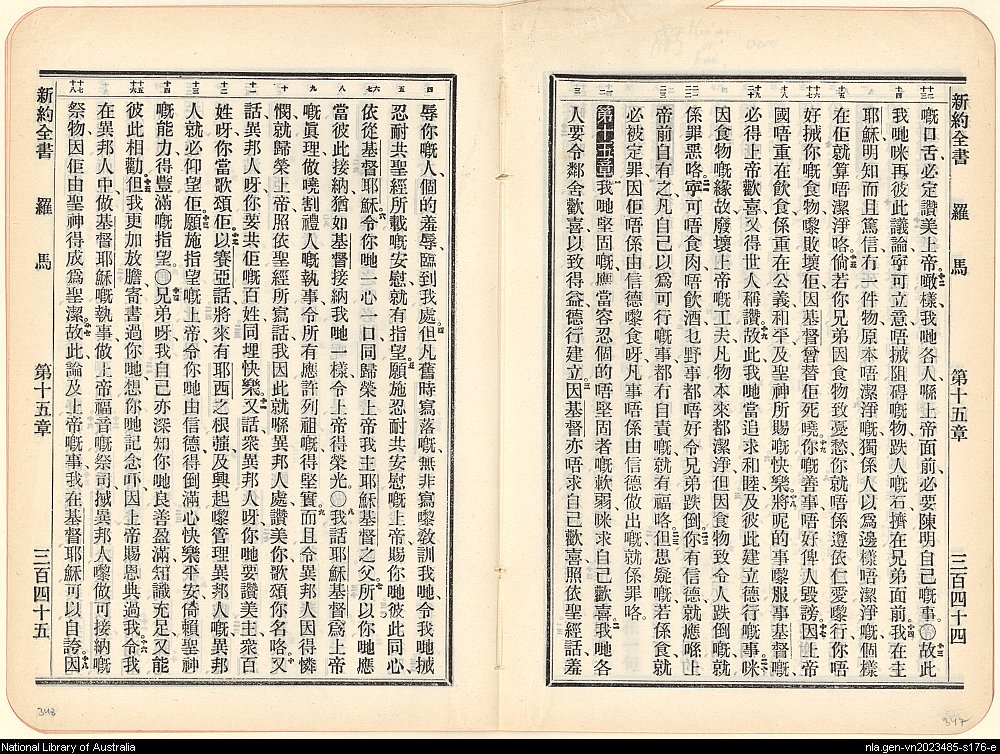 新約全書 羅馬 第十五章 三百四十四
嘅口舌、必定讚美上帝。噉樣我哋各人喺上帝面前、必要陳明自己嘅事。○故此
我哋咪再彼此議論、寧可立意唔搣阻碍嘅物、跌人嘅石、擠在兄弟面前。我在主
耶穌明知而且篤信、冇一件物原本唔潔淨嘅、獨係人以爲邊樣唔潔淨嘅、個樣
在佢就算唔潔淨咯。倘若你兄弟因食物致憂愁、你就唔係遵依仁愛嚟行、你唔
好搣你嘅食物嚟敗壞佢、因基督曾替佢死嘵。你嘅善事、唔好俾人毀謗。因上帝
國唔重在飲食、係重在公義和平、及聖神所賜嘅快樂。將呢的事嚟服事基督嘅、
必得上帝歡喜、又得世人稱讚。故此我哋當追求和睦、及彼此建立德行嘅事。咪
因食物嘅緣故、廢壞上帝嘅工夫、凡物本來都潔淨、但因食物致令人跌倒嘅、就
係罪惡咯。寧可唔食肉、唔飲酒、乜野事都唔好令兄弟跌倒。你有信德、就應喺上
帝前自有之、凡自己以爲可行嘅事、都冇自責嘅、就有福咯。但思疑嘅若係食、就
必被定罪、因佢唔係由信德嚟食呀、凡事唔係由信德做出嘅、就係罪咯。
第十五章 我哋堅固嘅、應當容忍個的唔堅固者嘅軟弱、咪求自己歡喜。我哋各
人要令鄰舍歡喜、以致得益、德行建立。因基督亦唔求自己歡喜、照依聖經話、羞
辱你嘅人、個的羞辱、臨到我處。但凡舊時寫落嘅、無非寫嚟教訓我哋、令我哋搣
忍耐共聖經所載嘅安慰、就有指望。願施忍耐共安慰嘅上帝、賜你哋彼此同心、
依從基督耶穌。令你哋一心一口、同歸榮上帝、我主耶穌基督之父。所以你哋應
當彼此接納、猶如基督接納我哋一樣、令上帝得榮光。○我話耶穌基督爲上帝
嘅眞理、做嘵割禮人嘅執事、令所有應許列祖嘅得堅實。而且令異邦人因得憐
憫、就歸榮上帝、照依聖經所寫話、我因此就喺異邦人處讚美你、歌頌你名咯。又
話、異邦人呀、你要共佢嘅百姓同埋快樂。又話、衆異邦人呀、你哋要讚美主、衆百
姓呀、你當歌頌佢。以賽亞話、將來有耶西之根强、及興起嚟管理異邦人嘅、異邦
人就必仰望佢。願施指望嘅上帝、令你哋由信德得倒滿心快樂平安、倚賴聖神
嘅能力、得豐滿嘅指望。○兄弟呀、我自己亦深知你哋良善盈滿、知識充足、又能
彼此相勸。但我更加放膽寄書過你哋、想你哋記念吓、因上帝賜恩典過我、令我
在異邦人中、做基督耶穌嘅執事、做上帝福音嘅祭司、搣異邦人嚟做可接納嘅
祭物、因佢由聖神得成爲聖潔。故此論及上帝嘅事、我在基督耶穌可以自誇。因
新約全書 羅馬 第十五章 三百四十五
348
347
National Library of Australia
nla.gen-vn2023485-s176-e